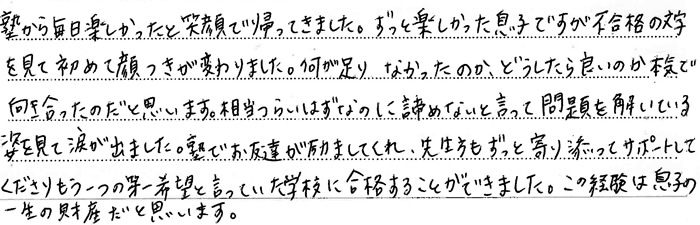 塾から毎日楽しかったと笑顔で帰ってきました。ずっと楽しかった息子ですが不合格の文字
を見て初めて顔つきが変わりました。何が足りなかったのか、どうしたら良いのか本気で
向き合ったのだと思います。相当つらいはずなのに諦めないと言って問題を解いている
姿を見て涙が出ました。塾でお友達が励ましてくれ、先生方もずっと寄り添ってサポートして
くださりもう一つの第一希望と言っていた学校に合格することができました。この経験は息子の
一生の財産だと思います。